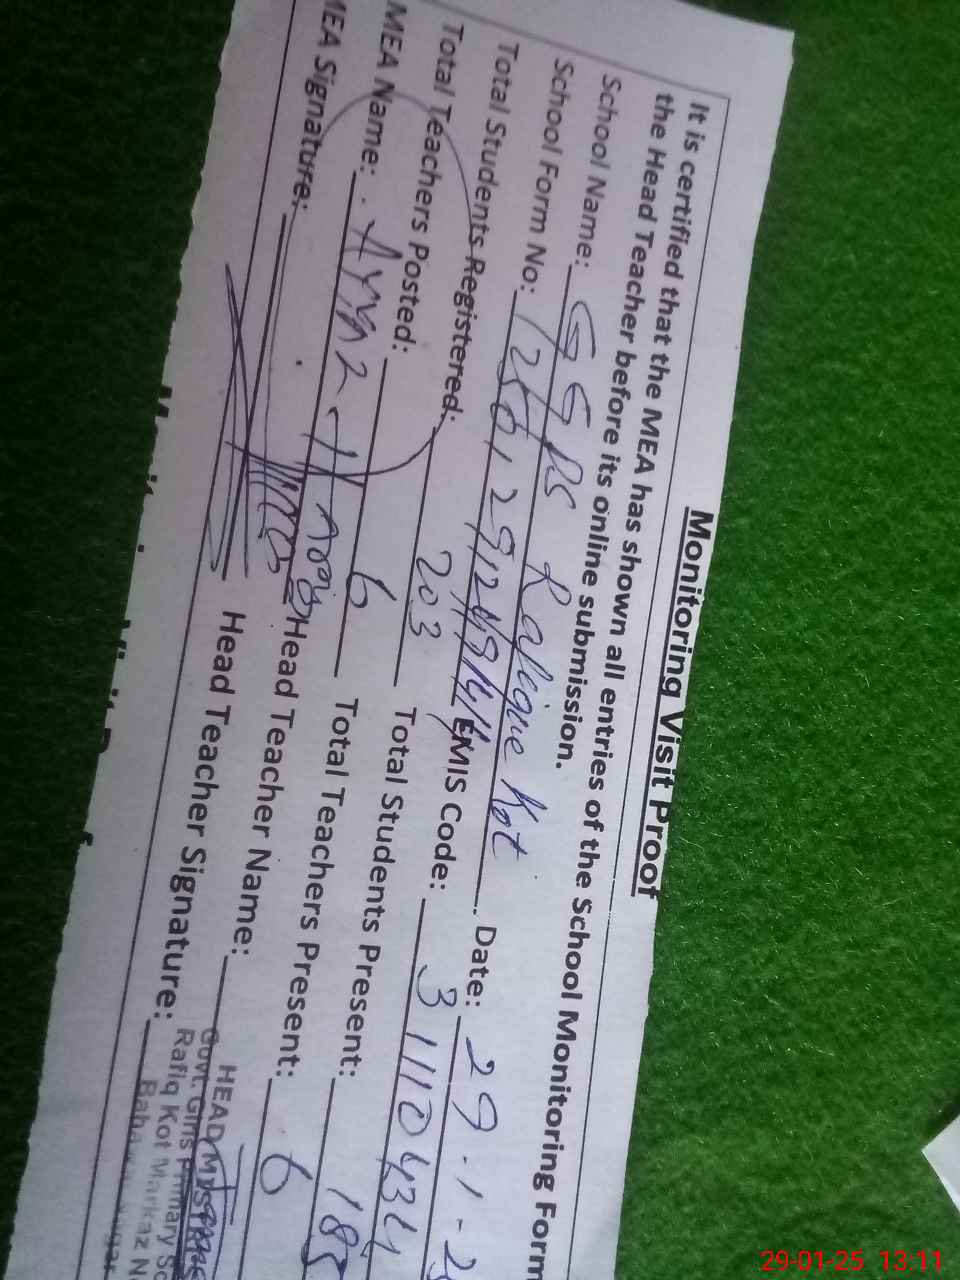 Monitoring Visit Proof
It is certified that the MEA has shown all entries of the School Monitoring Form
the Head Teacher before its online submission.
School Name: GGPS Rafique Kot
School Form No: Date: 29-1-2
Total Students Registered: 203 EMIS Code: 31110434
Total Teachers Posted: 6 Total Students Present: 185
MEA Name: Total Teachers Present: 6
MEA Signature: Head Teacher Name:
Head Teacher Signature:
HEAD
Govt. Girls Primary Sc
Rafiq Kot Markaz N
29-01-25 13:11